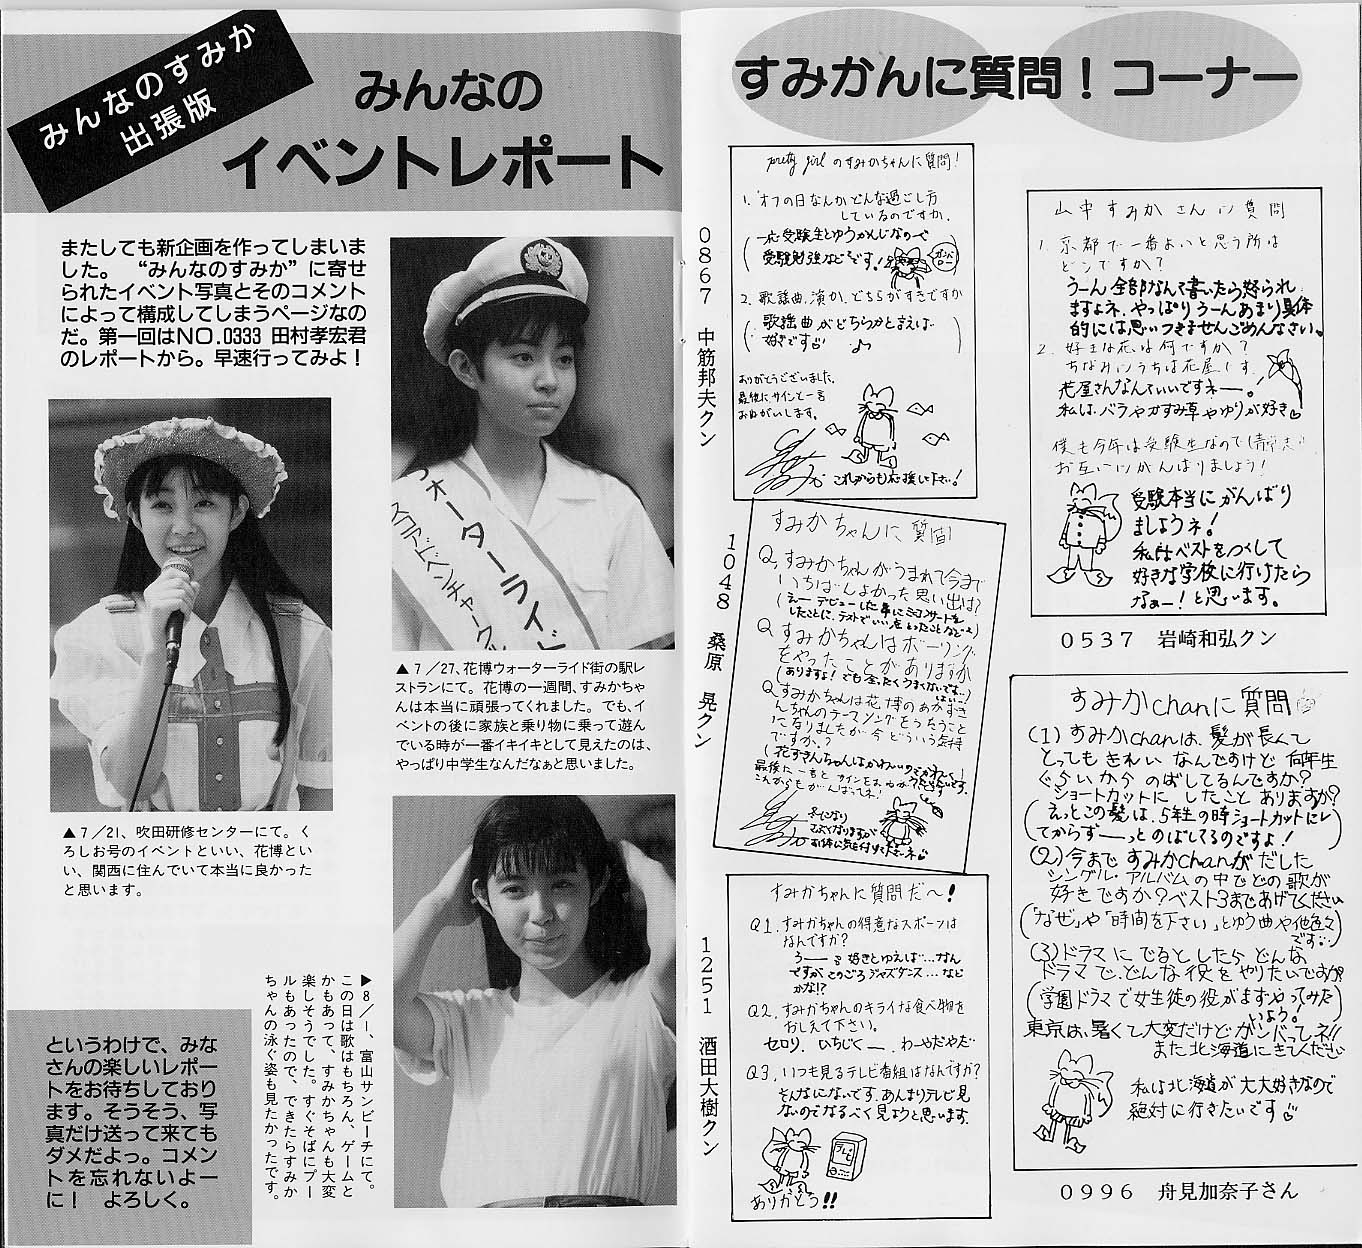 みんなのすみか
出張版
みんなの
イベントレポート
またしても新企画を作ってしまいま
した。 “みんなのすみか”に寄せ
られたイベント写真とそのコメント
によって構成してしまうページなの
だ。第一回はNO.0333 田村孝宏君
のレポートから。早速行ってみよ！
ウォーターライド
▲7／27、花博ウォーターライド街の駅レ
ストランにて。花博の一週間、すみかちゃ
んは本当に頑張ってくれました。でも、イ
ベントの後に家族と乗り物に乗って遊ん
でいる時が一番イキイキとして見えたのは、
やっぱり中学生なんだなぁと思いました。
▲7／21、吹田研修センターにて。く
ろしお号のイベントといい、花博とい
い、関西に住んでいて本当に良かった
と思います。
▶8／1、富山サンビーチにて。
この日は歌はもちろん、ゲームと
かもあって、すみかちゃんも大変
楽しそうでした。すぐそばにプー
ルもあったので、できたらすみか
ちゃんの泳ぐ姿も見たかったです。
というわけで、みな
さんの楽しいレポー
トをお待ちしており
ます。そうそう、写
真だけ送って来ても
ダメだよっ。コメン
トを忘れないよー
に！ よろしく。
すみかんに質問！コーナー
pretty girl のすみかちゃんに質問！
1. オフの日なんかどんな過ごし方
しているのですか.
一応受験生とゆうかんじなので
受験勉強などです!
2. 歌謡曲、演か、どちらがすきですか
歌謡曲がどちらかと言えば
好きです
ありがとうございました.
最後にサインと一言
おねがいします。
これからも応援して下さい!
0867 中筋邦夫クン
すみかちゃんに質問
Q. すみかちゃんがうまれて今まで
いちばんよかった思い出は?
Q すみかちゃんはボーリング
をやったことがありますか
Q すみかちゃんは花博のあかずき
んちゃんのテーマソングをうたうこと
になりましたが今どういう気持
ですか?
1048 桑原 晃クン
すみかちゃんに質問だ～!
Q1. すみかちゃんの得意なスポーツは
なんですか?
うーー 好きとゆえば…なん
ですがこのごろジャズダンス…など
かな!?
Q2. すみかちゃんのキライな食べ物を
おしえて下さい。
セロリ. いちじくー. わーやだやだ
Q3. いつも見るテレビ番組はなんですか?
そんなにないです. あんまりテレビ見
ないのでなるべく見ようと思います.
テレビ
ありがとう!!
1251 酒田大樹クン
山中すみかさんに質問
1. 京都で一番よいと思う所は
どこですか?
うーん全部なんて書いたら怒られ
ますよネ. やっぱりうーんあまり具体
的には思いつきませんごめんなさい。
2. 好きな花は何ですか?
ちなみにうちは花屋です.
花屋さんなんていいですネー.!
私は、バラやかすみ草やゆりが好き
僕も今年は受験生なので
お互いにがんばりましょう!
受験本当にがんばり
ましょうネ!
私はベストをつくして
好きな学校に行けたら
なぁー! と思います。
0537 岩崎和弘クン
すみかchanに質問
(1) すみかchanは、髪が長くて
とってもきれい なんですけど 何年生
ぐらいから のばしてるんですか?
ショートカットに したこと ありますか?
えっとこの髪は、5年生の時ショートカットにし
てからずーーっとのばしてるのですよ!
(2) 今まで すみかchanがだした
シングル・アルバムの中でどの歌が
好きですか?ベスト3まであげてください
「なぜ」や「時間を下さい」とゆう曲や他色々
です
(3) ドラマに でるとしたら どんな
ドラマで、どんな役をやりたいですか?
学園ドラマで女生徒の役がまずやってみた
いよう!
東京は、暑くて大変だけどガンバってネ!!
また北海道にきてください
私は北海道が大大好きなので
絶対に行きたいです
0996 舟見加奈子さん